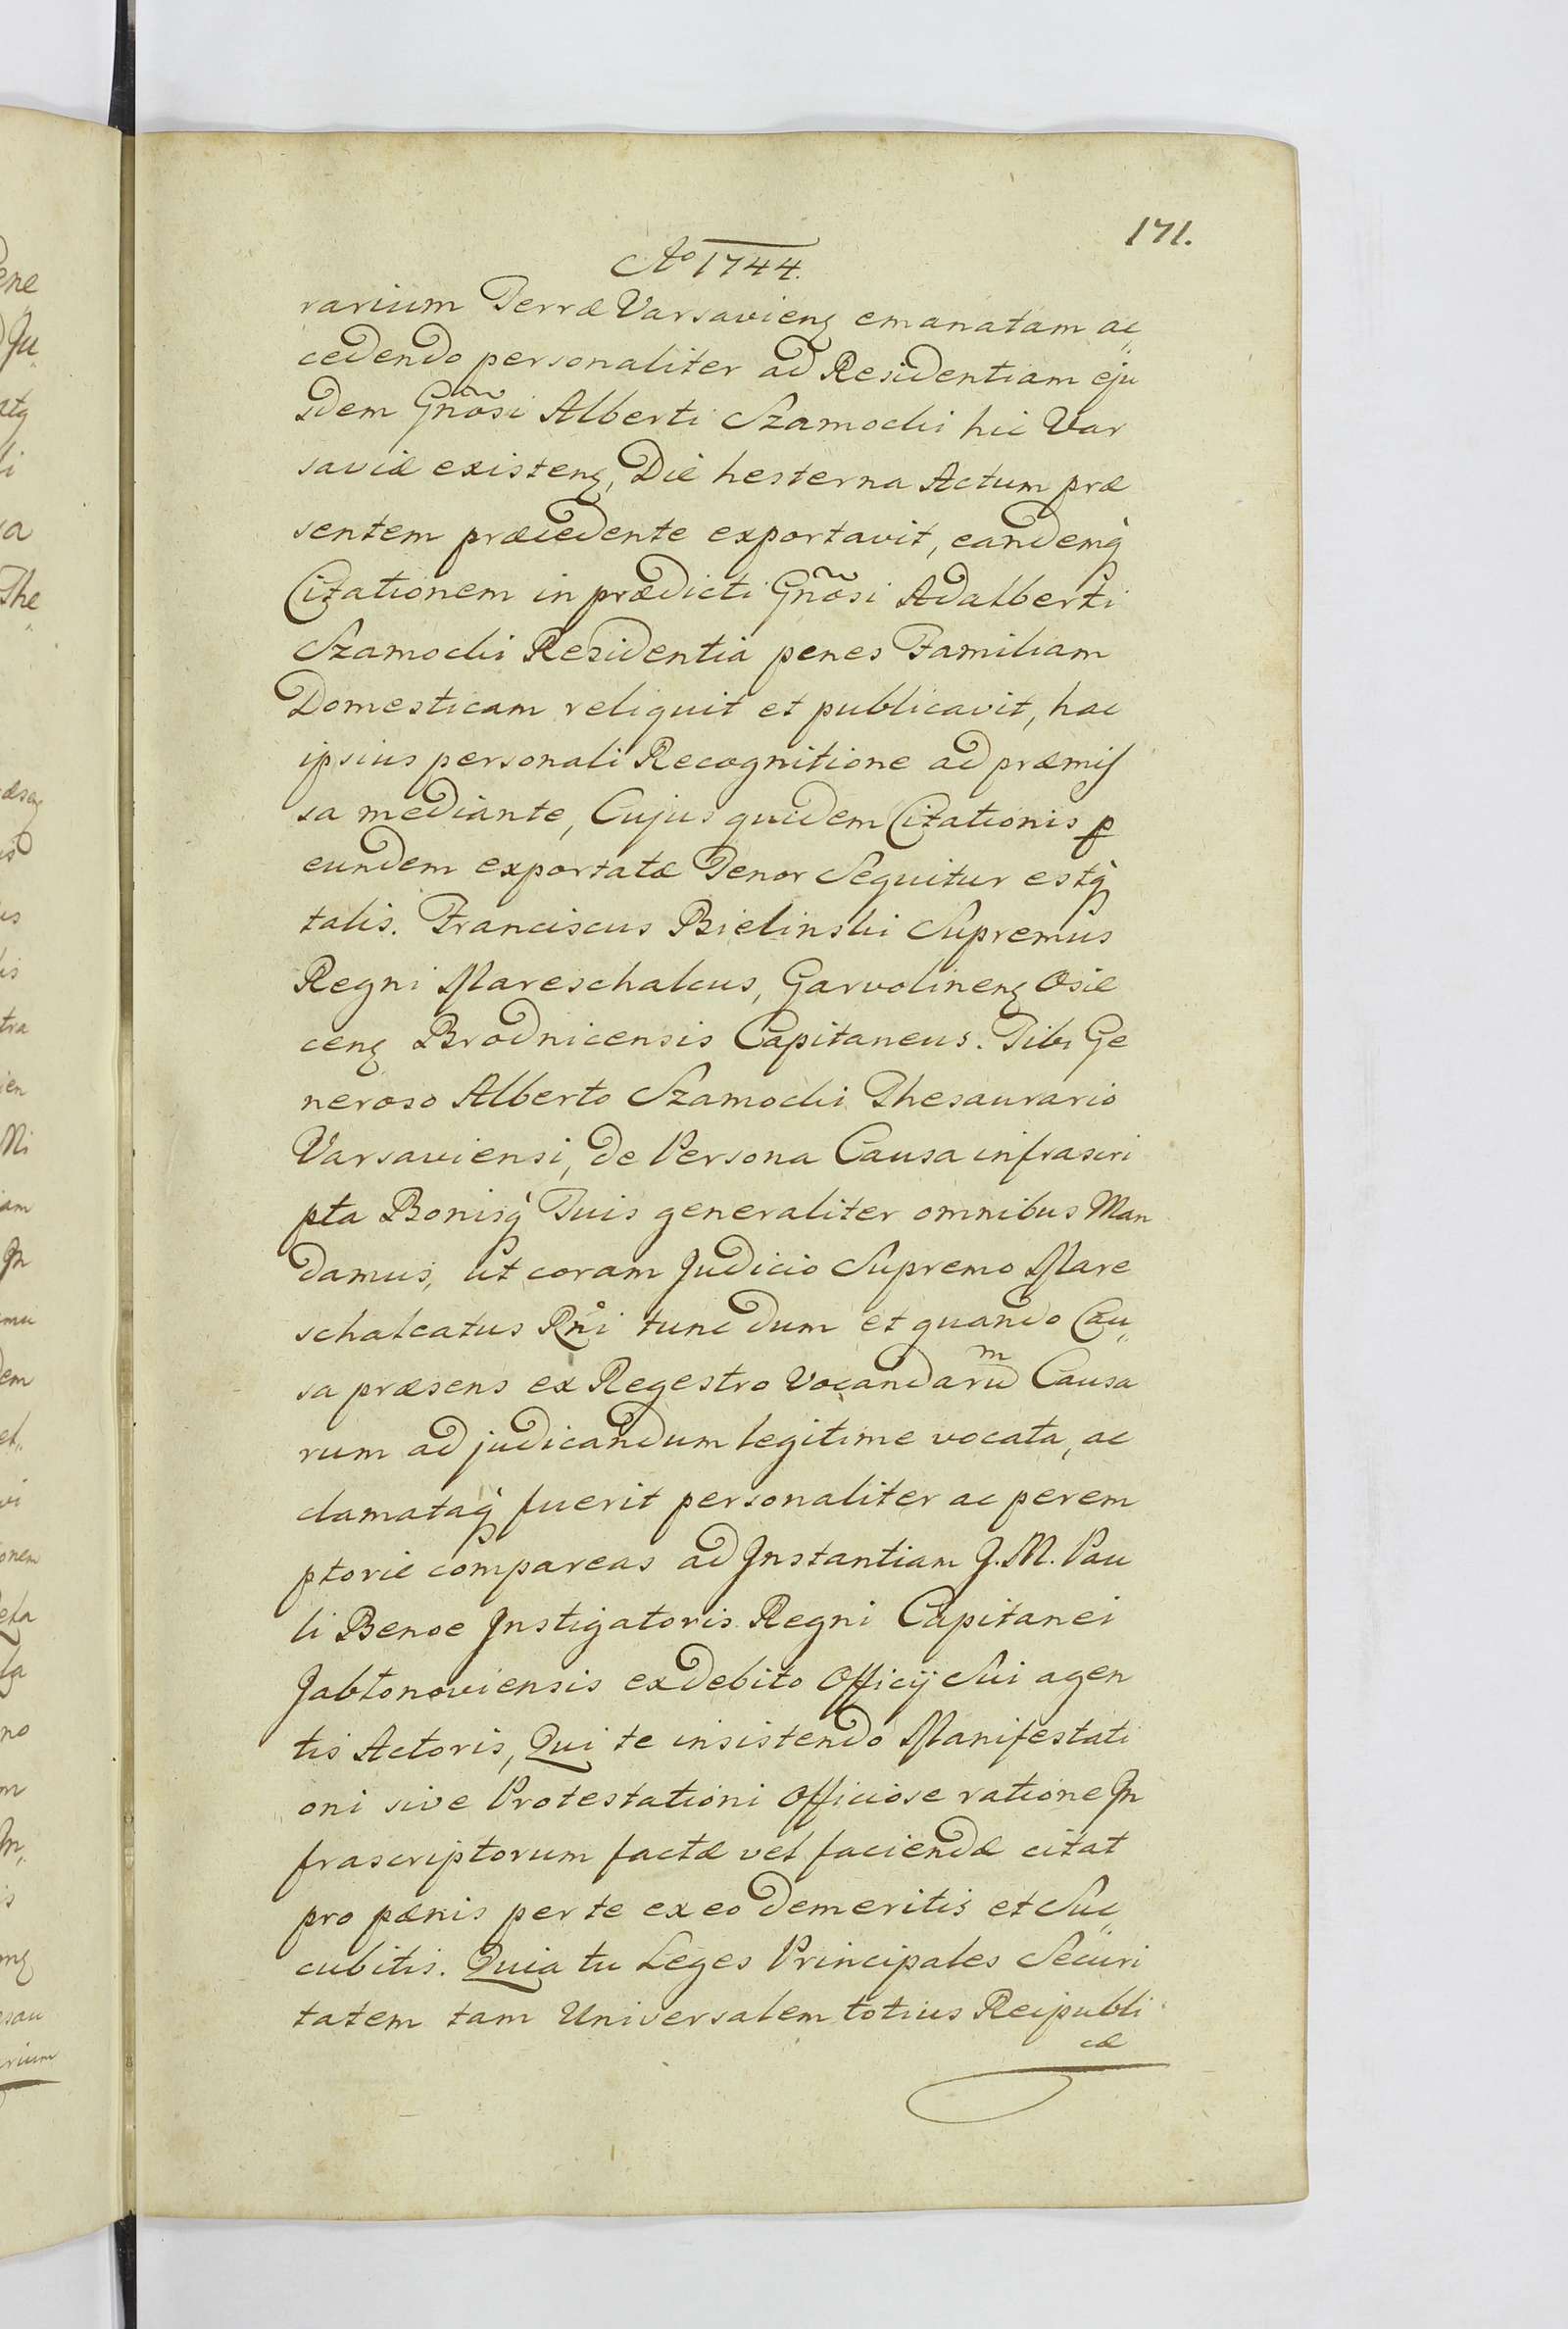 171.
Aº 1744.
rarium Terræ Varsavienꝫ emanatam ac„
cedendo personaliter ad Residentiam eju
sdem Gnõsi Alberti Szamocki hic Var
saviæ existenꝫ, Die hesterna Actum præ
sentem præcedente exportavit, eandemq̀
Citationem in prædicti Gnõsi Adalberti
Szamocki Residentia penes Familiam
Domesticam reliquit et publicavit, hac
ipsius personali Recognitione ad præmis
sa mediante, Cujus quidem Citationis ꝑ
eundem exportatæ Tenor Sequitur estq̀
talis. Franciscus Bielinski Supremus
Regni Mareschalcus, Garvolinenꝫ Osie
cenꝫ Brodnicensis Capitaneus. Tibi Ge
neroso Alberto Szamocki Thesaurario
Varsaviensi, de Persona Causa infrascri
pta Bonisq̀ Tuis generaliter omnibus Man
damus, ut coram Judicio Supremo Mare
schalcatus Rni tunc dum et quando Cau„
sa præsens ex Regestro Vocandarum Causa
rum ad judicandum legitime vocata, ac
clamataq̀ fuerit personaliter ac perem
ptorie compareas ad Instantiam J. M. Pau
li Benoe Instigatoris Regni Capitanei
Jabłonoviensis ex Debito Officij Sui agen
tis Actoris, Qui te insistendo Manifestati
oni sive Protestationi Officiose ratione In
frascriptorum factæ vel faciendæ citat
pro pænis per te ex eo demeritis et Suc„
cubitis. Quia tu Leges Principales Securi
tatem tam Universalem totius Reipubli
cæ